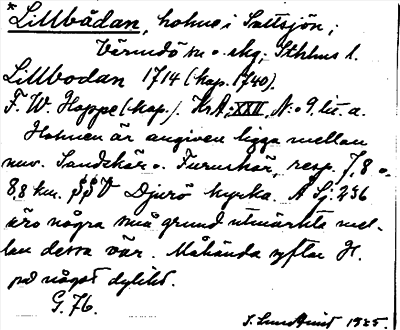 *Lillbådan, holme i Sattsjön;
Värmdö sn o. skg; Sthlms l.
Lillbodan 1714 (kop. 1740).
F. W. Hoppe (kop.). KrA: XXII N:o 9 lit. a.
Holmen är angiven ligga mellan
nuv. Sandskär o. Furuskär, resp. 7,8 o.
8,8 km. SSV Djurö kyrka. Å Sj: 236
äro några små grund utmärkta mel-
lan dessa skär. Måhända syftar H.
på något dylikt.
G. 76.
1925.